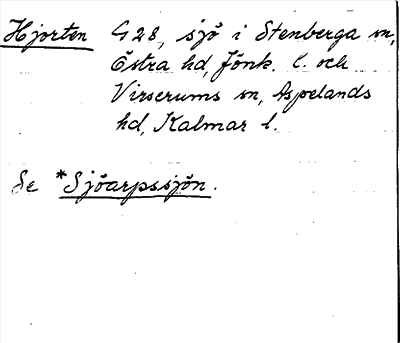 Hjorten G28, sjö i Stenberga sn,
Östra hd, Jönk. l. och
Virserums sn, Aspelands
hd, Kalmar l.
Se *Sjöarpssjön.